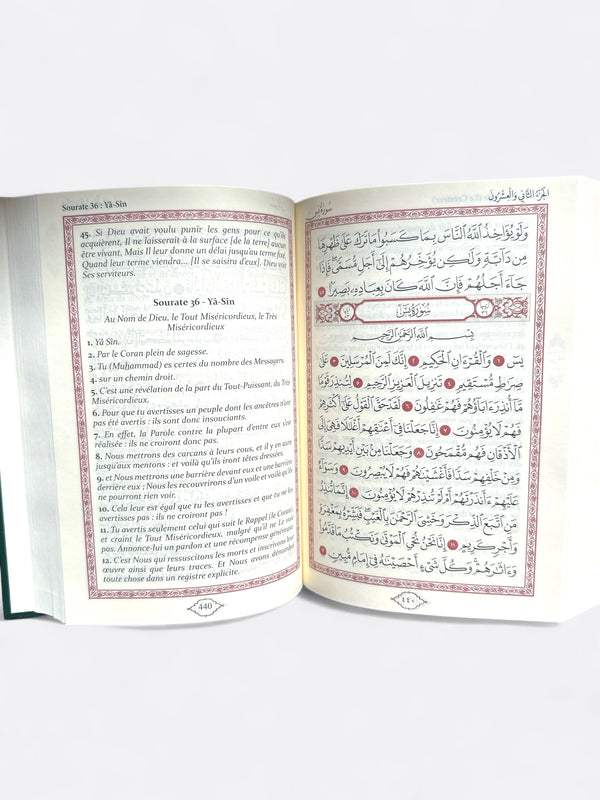 Sourate 36 : Yâ-Sîn
45. Si Dieu avait voulu punir les gens pour ce qu'ils
acquièrent, Il ne laisserait à la surface [de la terre] aucun
être vivant. Mais Il leur donne un délai jusqu'au terme fixé.
Quand leur terme viendra... [Il se saisira d'eux]. Dieu voit
Ses serviteurs.
Sourate 36 - Yâ-Sîn
Au Nom de Dieu, le Tout Miséricordieux, le Très
Miséricordieux
1. Yâ Sîn.
2. Par le Coran plein de sagesse.
3. Tu (Muḥammad) es certes du nombre des Messagers,
4. sur un chemin droit.
5. C'est une révélation de la part du Tout-Puissant, du Très
Miséricordieux.
6. Pour que tu avertisses un peuple dont les ancêtres n'ont
pas été avertis : ils sont donc insouciants.
7. En effet, la Parole contre la plupart d'entre eux s'est
réalisée : ils ne croiront donc pas.
8. Nous mettrons des carcans à leurs cous, et il y en aura
jusqu'aux mentons : et voilà qu'ils iront têtes dressées.
9. et Nous mettrons une barrière devant eux et une barrière
derrière eux ; Nous les recouvrirons d'un voile et voilà qu'ils
ne pourront rien voir.
10. Cela leur est égal que tu les avertisses et que tu ne les
avertisses pas : ils ne croiront jamais.
11. Tu avertis seulement celui qui suit le Rappel (le Coran),
et craint le Tout Miséricordieux, malgré qu'il ne Le voit
pas. Annonce-lui un pardon et une récompense généreuse.
12. C'est Nous qui ressuscitons les morts et inscrivons leur
œuvre ainsi que leurs traces. Et Nous avons dénombré
toute chose dans un registre explicite.
440
سُورَةُ يسٓ
الجُزءُ الثَّانِي وَالعِشْرُونَ
وَلَوْ يُؤَاخِذُ ٱللَّهُ ٱلنَّاسَ بِمَا كَسَبُواْ مَا تَرَكَ عَلَىٰ ظَهْرِهَا
مِن دَآبَّةٍ وَلَٰكِن يُؤَخِّرُهُمْ إِلَىٰٓ أَجَلٍ مُّسَمًّى فَإِذَا
جَآءَ أَجَلُهُمْ فَإِنَّ ٱللَّهَ كَانَ بِعِبَادِهِۦ بَصِيرًۢا ٤٥
سُورَةُ يسٓ
بِسْمِ ٱللَّهِ ٱلرَّحْمَٰنِ ٱلرَّحِيمِ
يسٓ ١ وَٱلْقُرْءَانِ ٱلْحَكِيمِ ٢ إِنَّكَ لَمِنَ ٱلْمُرْسَلِينَ ٣ عَلَىٰ
صِرَٰطٍ مُّسْتَقِيمٍ ٤ تَنزِيلَ ٱلْعَزِيزِ ٱلرَّحِيمِ ٥ لِتُنذِرَ قَوْمًا
مَّآ أُنذِرَ ءَابَآؤُهُمْ فَهُمْ غَٰفِلُونَ ٦ لَقَدْ حَقَّ ٱلْقَوْلُ عَلَىٰٓ أَكْثَرِهِمْ
فَهُمْ لَا يُؤْمِنُونَ ٧ إِنَّا جَعَلْنَا فِىٓ أَعْنَٰقِهِمْ أَغْلَٰلًا فَهِىَ إِلَى
ٱلْأَذْقَانِ فَهُم مُّقْمَحُونَ ٨ وَجَعَلْنَا مِنۢ بَيْنِ أَيْدِيهِمْ سَدًّا
وَمِنْ خَلْفِهِمْ سَدًّا فَأَغْشَيْنَٰهُمْ فَهُمْ لَا يُبْصِرُونَ ٩ وَسَوَآءٌ
عَلَيْهِمْ ءَأَنذَرْتَهُمْ أَمْ لَمْ تُنذِرْهُمْ لَا يُؤْمِنُونَ ١٠ إِنَّمَا تُنذِرُ
مَنِ ٱتَّبَعَ ٱلذِّكْرَ وَخَشِىَ ٱلرَّحْمَٰنَ بِٱلْغَيْبِ فَبَشِّرْهُ بِمَغْفِرَةٍ
وَأَجْرٍ كَرِيمٍ ١١ إِنَّا نَحْنُ نُحْىِ ٱلْمَوْتَىٰ وَنَكْتُبُ مَا قَدَّمُواْ
وَءَاثَٰرَهُمْ وَكُلَّ شَىْءٍ أَحْصَيْنَٰهُ فِىٓ إِمَامٍ مُّبِينٍ ١٢
٤٤٠